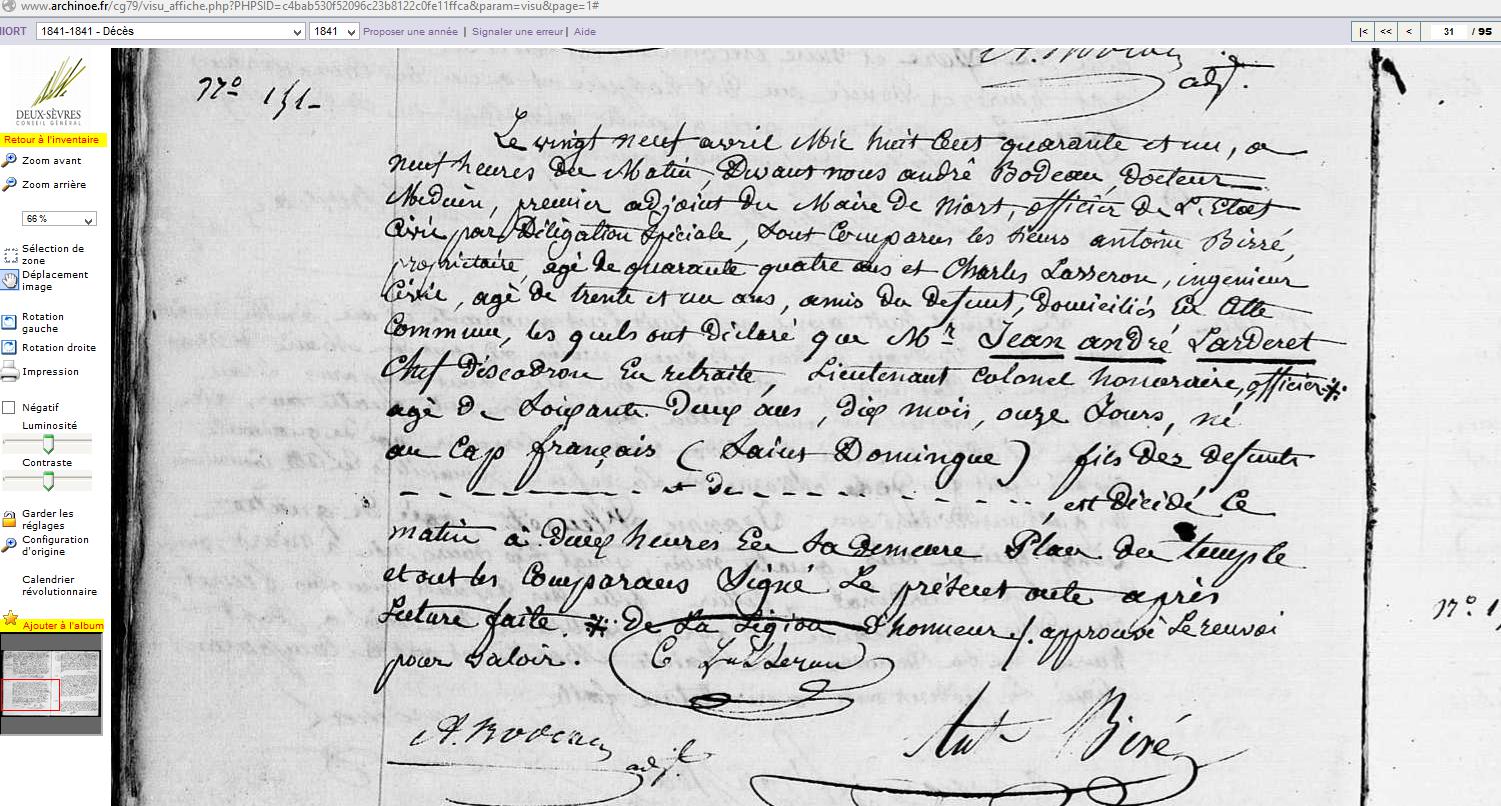 www.archinoe.fr/cg79/visu_affiche.php?PHPSID=c4bab530f52096c23b8122c0fe11ffca&param=visu&page=1#
NIORT 1841-1841 - Décès 1841 Proposer une année | Signaler une erreur | Aide |< << < 31 / 95
DEUX-SÈVRES
CONSEIL GÉNÉRAL
Retour à l'inventaire
Zoom avant
Zoom arrière
66 %
Sélection de
zone
Déplacement
image
Rotation
gauche
Rotation droite
Impression
Négatif
Luminosité
Contraste
Garder les
réglages
Configuration
d'origine
Calendrier
révolutionnaire
Ajouter à l'album
adj.
No 151-
Le vingt neuf avril Mil huit Cent quarante et un, a
neuf heures du Matin, Devant nous andré Bodeau, docteur
Médecin, premier adjoint du Maire de Niort, officier De L'Etat
Civil par Délégation Spéciale, Sont Comparus les Sieurs antoine Birré,
propriétaire, agé de quarante quatre ans et Charles Lasseron, ingenieur
Civil, agé de trente et un ans, amis du defunt, domiciliés En Cette
Commune, les quels ont Déclaré que Mr Jean andré Larderet
Chef D'escadron En retraite, Lieutenant Colonel honoraire, officier *
agé de Soixante Deux ans, dix mois, onze Jours, né
au Cap français (Saint Domingue) fils des defunts
- - - - - - - et de - - - - - - - , est Décédé Ce
matin à Deux heures En Sa Demeure Place du temple
et ont les Comparans Signé Le présent acte après
Lecture faite. * De La Légion d'honneur /. approuvé Le renvoi
pour valoir. C Lasseron
A. Bodeau adj. Ant Biré
No 1